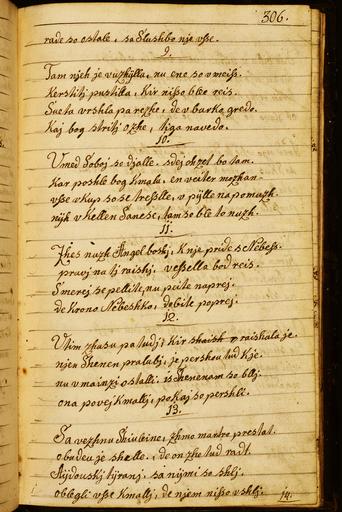 306.
rade so ostale, sa Slushbo nje vsse.
9.
Tam njek je vuzhilla, nu ene so vmeiss.
Kerstiti pustilla, kir nisso ble reis.
Sueta vrshla pa rezhe, de v barko gredo.
Kaj bog stritj ozhe, tiga navedo.
10.
Vmed Soboj se djalle, sdej bo tam.
kar poshle bog kmalu, en veiter mozhan
vsse vkup so se tresslle, v pijlle na pomuzh.
nijk v kellen Sanese, tam so ble to nuzh.
11.
Zhes nuzh Angel boshj, K nje pride s Nebess.
pravj na tj raiskj, vessella bod reis.
S'merej se pellite, nu peite naprej.
de Krono Nebeshko, dobite poprej.
12.
V tim zhasu pa tudj, kir shaish raiskala je.
njen Shenen pralubj, je pershou tud kje.
nu v mainzi ostalli, is Shenenam so blj.
ona povej kmallj, pokaj so pershli.
13.
Sa vezhnu Shiubine, zhmo martro prestat.
obadva je shelle, de on zhe tud radt.
Aijdouskj tijranj, sa nijmi so shlj.
oblegli vsse kmallj, de njem nisso vshlj.
14.